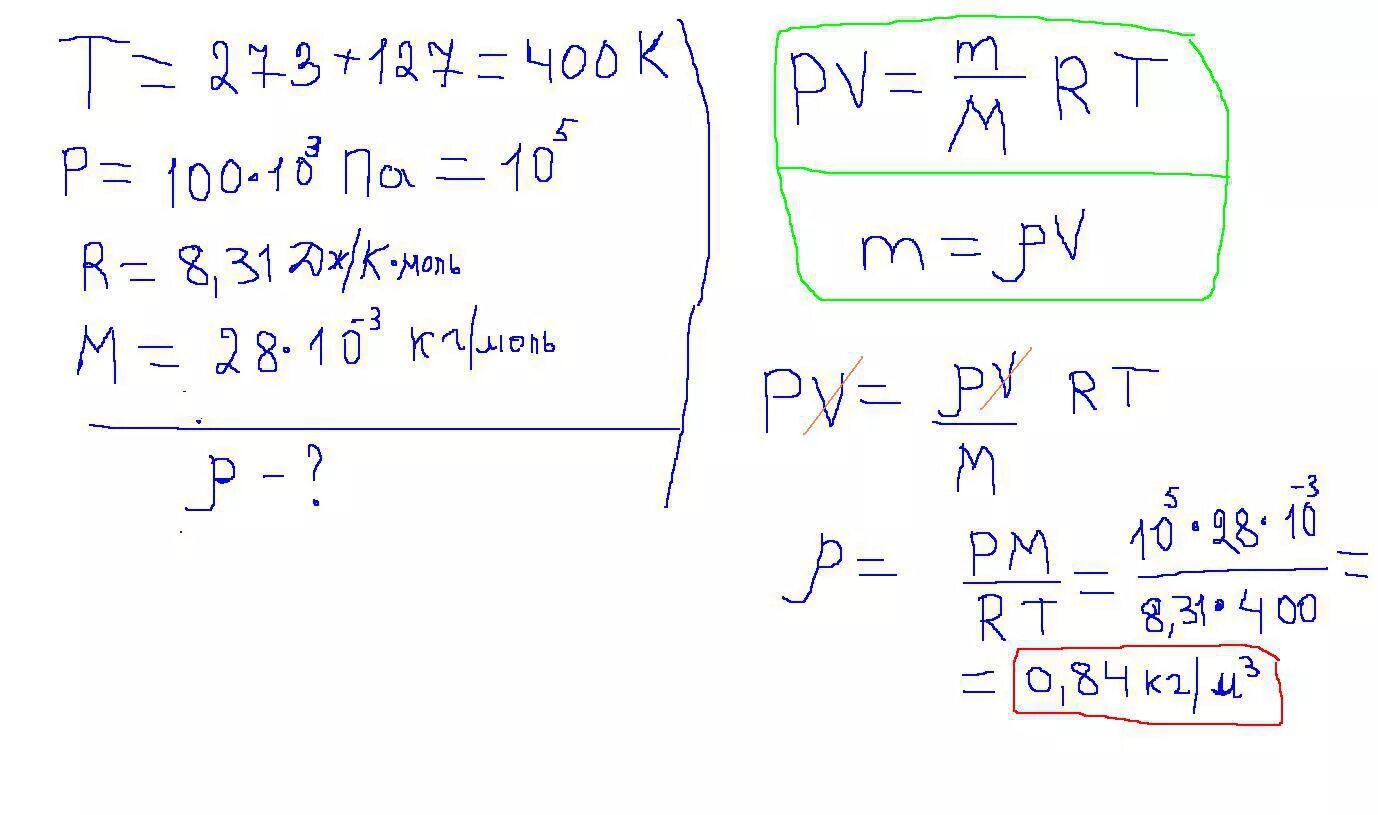 T = 273 + 127 = 400 К
P = 100·10³ Па = 10⁵
R = 8,31 Дж/К·моль
M = 28·10⁻³ кг/моль
ρ - ?
PV = m/M R T
m = ρV
PV = ρV/M R T
ρ = PM/RT = 10⁵·28·10⁻³/8,31·400 =
= 0,84 кг/м³